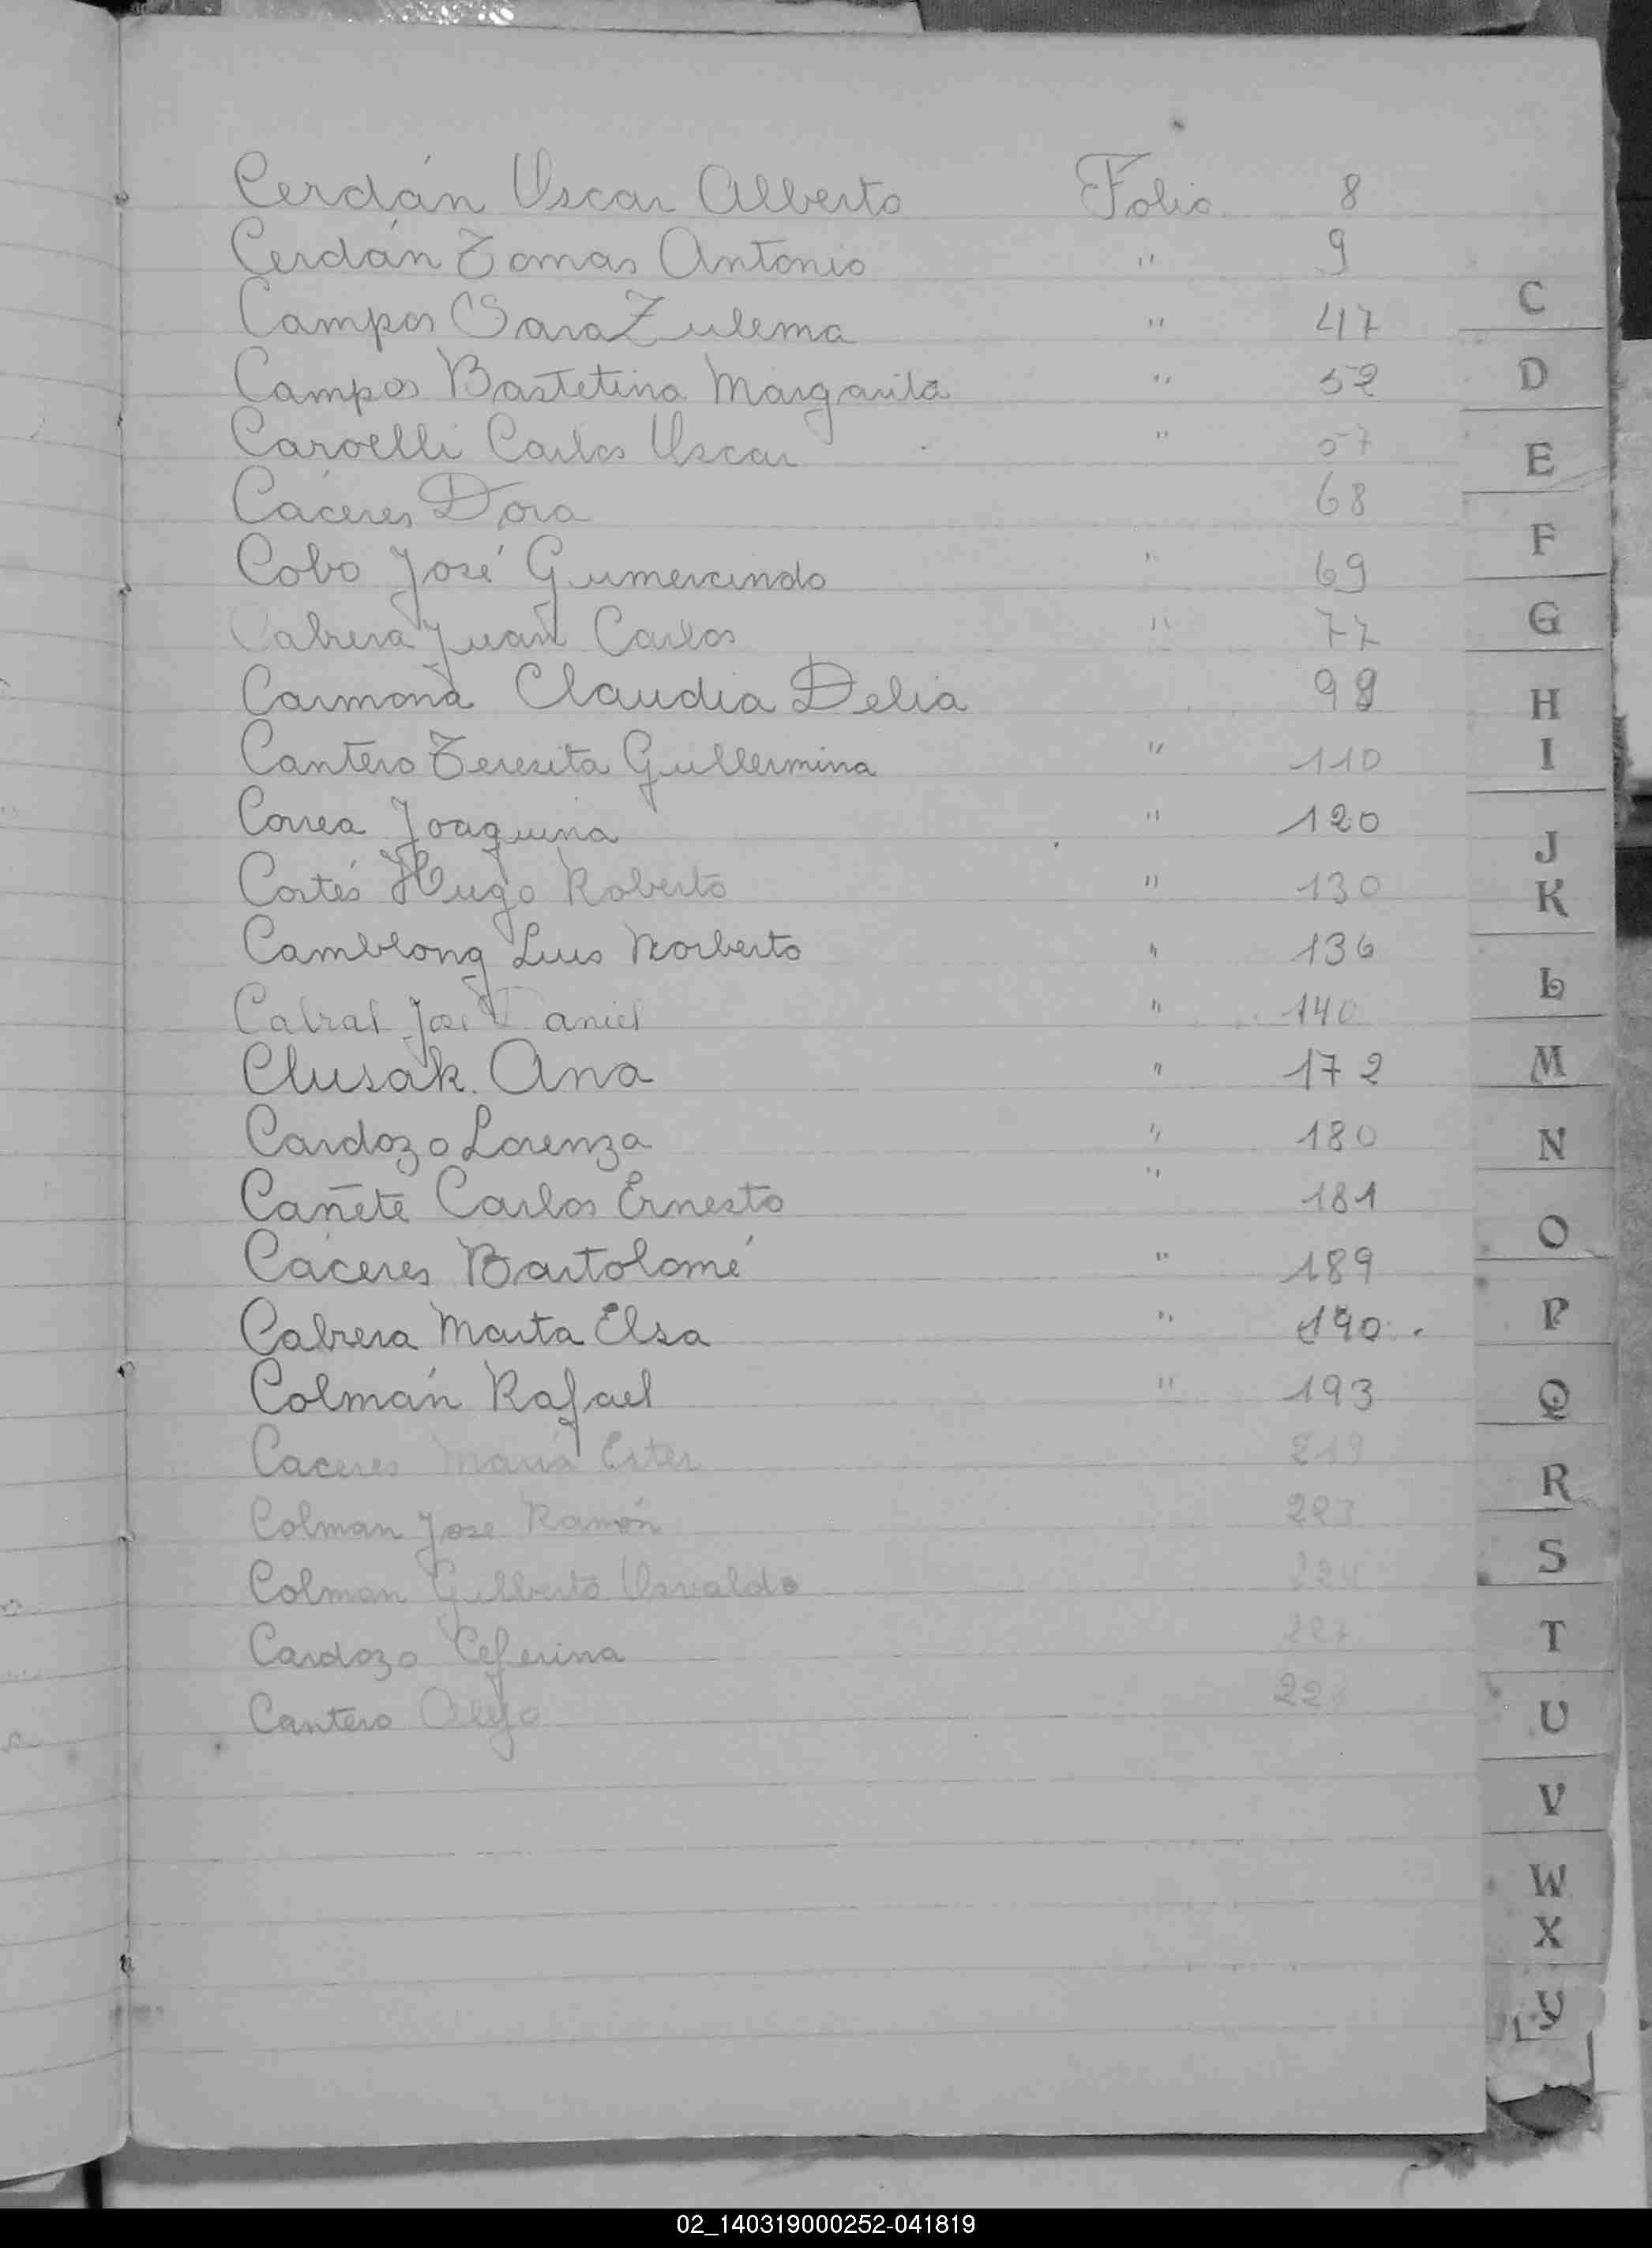 Cerdán Oscar Alberto Folio 8
Cerdán Tomas Antonio " 9
Campos Sara Zulema " 47
Campos Bastetina Margarita " 52
Caroelli Carlos Oscar " 57
Cáceres Dora 68
Cobo José Gumercindo " 69
Cabrera Juan Carlos " 77
Carmona Claudia Delia 98
Cantero Teresita Guillermina " 110
Correa Joaquina " 120
Cortés Hugo Roberto " 130
Camblong Luis Norberto " 136
Cabral José Daniel " 140
Clusak. Ana " 172
Cardozo Lorenza " 180
Cañete Carlos Ernesto " 181
Cáceres Bartolomé " 189
Cabrera Marta Elsa " 190.
Colmán Rafael " 193
Caceres María Ester 219
Colman Jose Ramón 223
Colman Gilberto Osvaldo 224
Cardozo Ceferina 227
Cantero Alejo
C
D
E
F
G
H
I
J
K
L
M
N
O
P
Q
R
S
T
U
V
W
X
Y
02_140319000252-041819